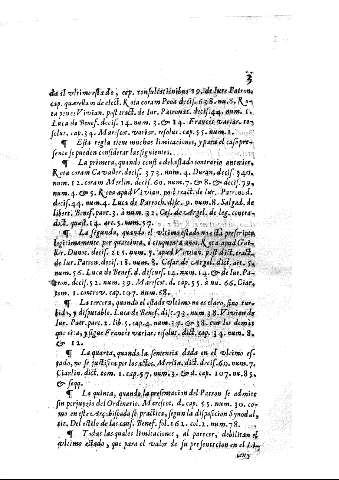 3
da il vltimo estado, cap. consultationibus 19. de Iure Patron.
cap. quærelam de elect. Rota coram Peña decis. 638. nu. 8. Ro
ta penes Vivian. post tract. de Iur. Patronat. decis. 44. num. 1.
Luca de Benef. decis. 14. num. 3. & 14. Francis variar. con
solut. cap. 34. Marescot. variar. resolut. cap. 55. num. 1.
¶ Esta regla tiene muchas limitaciones, y para el caso pre-
sente se pueden considerar las siguientes.
¶ La primera, quando consta del estado contrario anterior,
Rota coram Cavaler. decis. 373. num. 4. Duran. decis. 340.
num. 12. coram Merlin. decis. 60. num. 7. & 8. & decis. 79.
num. 4. & 5. Rota apud Vivian. post tract. de Iur. Patron. d.
decis. 44. num. 4. Luca de Patroch. disc. 9. num. 8. Salgad. de
libert. Benef. part. 3. à num. 32. Ces. de Argel. de leg. contra-
dict. quæst. 14. art. 5. num. 57.
¶ La segunda, quando el vltimo estado no està prescripto
legitimamente por quarenta, ò cinquenta años, Rota apud
Dunoz. decis. 215. num. 5. apud Vivian. post dict. tract.
de Iur. Patron. decis. 18. num. 8. Cesar de Argel. dict. art. 5.
num. 56. Luca de Benef. d. discurs. 14. num. 14. & de Iur. Pa-
tron. decis. 52. num. 39. Marescot. d. cap. 55. à nu. 66. Ciar,
tom. 1. controv. cap. 107. num. 68.
¶ La tercera, quando el estado vltimo no es claro, sino tur-
bido, y disputable. Luca de Benef. dis. 73. num. 38. Vivian de
Iur. Patr. parc. 2. lib. 5. cap. 4. num. 37. & 38. con los demàs
que cita, y sigue Francis variar. resolut. dict. cap. 34. num. 8.
& 12.
¶ La quarta, quando la sentencia dada en el vltimo es-
tado, no se justifica por los actos. Merlin. dict. decis. 60. num. 7.
Ciarlin. dict. tom. 1. cap. 57. num. 3. & d. cap. 107. nu. 85.
& seqq.
¶ La quinta, quando la presentacion del Patron se admite
sin perjuyzio del Ordinario. Marescot. d. cap. 55. num. 30. co-
mo en este Arçobispado se practica, segun la disposicion Synodal,
tit. Del estilo de las caus. Benef. fol. 162. col. 2. num. 78.
¶ Todas las quales limitaciones, al parecer, debilitan el
vltimo estado, que para el valor de su presentacion en el